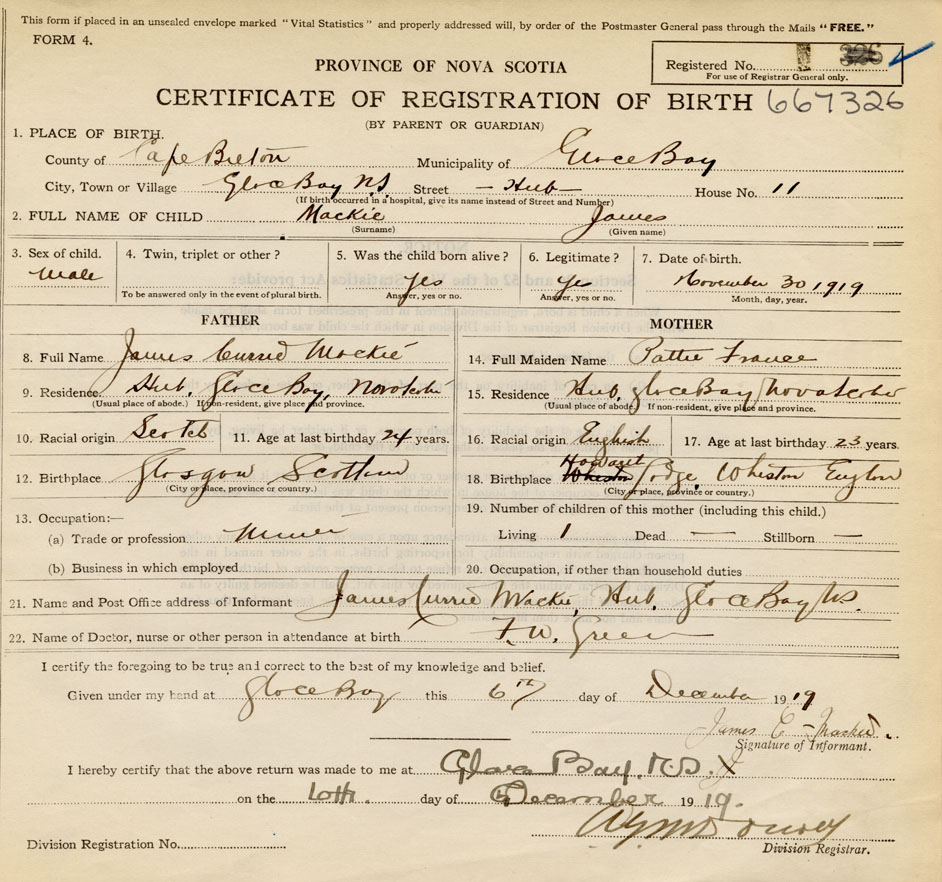 This form if placed in an unsealed envelope marked "Vital Statistics" and properly addressed will, by order of the Postmaster General pass through the Mails "FREE."
FORM 4.
Registered No.
For use of Registrar General only.
PROVINCE OF NOVA SCOTIA
CERTIFICATE OF REGISTRATION OF BIRTH 667326
(BY PARENT OR GUARDIAN)
1. PLACE OF BIRTH.
County of Cape Breton Municipality of Glace Bay
City, Town or Village Glace Bay N.S. Street - Hub - House No. 11
(If birth occurred in a hospital, give its name instead of Street and Number)
2. FULL NAME OF CHILD Mackie James
(Surname) (Given name)
3. Sex of child. 4. Twin, triplet or other? 5. Was the child born alive? 6. Legitimate? 7. Date of birth.
Male Yes Yes November 30 1919
To be answered only in the event of plural birth. Answer, yes or no. Answer, yes or no. Month, day, year.
FATHER MOTHER
8. Full Name James Currie Mackie 14. Full Maiden Name Pattie France
9. Residence Hub, Glace Bay, Nova Scotia 15. Residence Hub, Glace Bay Nova Scotia
(Usual place of abode.) If non-resident, give place and province. (Usual place of abode.) If non-resident, give place and province.
10. Racial origin Scotch 11. Age at last birthday 24 years. 16. Racial origin English 17. Age at last birthday 23 years.
12. Birthplace Glasgow 18. Birthplace Whiston
(City or place, province or country.) (City or place, province or country.)
13. Occupation:— 19. Number of children of this mother (including this child.)
(a) Trade or profession Miner Living 1 Dead — Stillborn —
(b) Business in which employed 20. Occupation, if other than household duties
21. Name and Post Office address of Informant James Currie Mackie, Hub, Glace Bay N.S.
22. Name of Doctor, nurse or other person in attendance at birth F. W. Green
I certify the foregoing to be true and correct to the best of my knowledge and belief.
Given under my hand at Glace Bay this 6TH day of December 1919
James C Mackie.
Signature of Informant.
I hereby certify that the above return was made to me at Glace Bay, N.S.
on the day of December 1919.
Division Registration No.
Division Registrar.